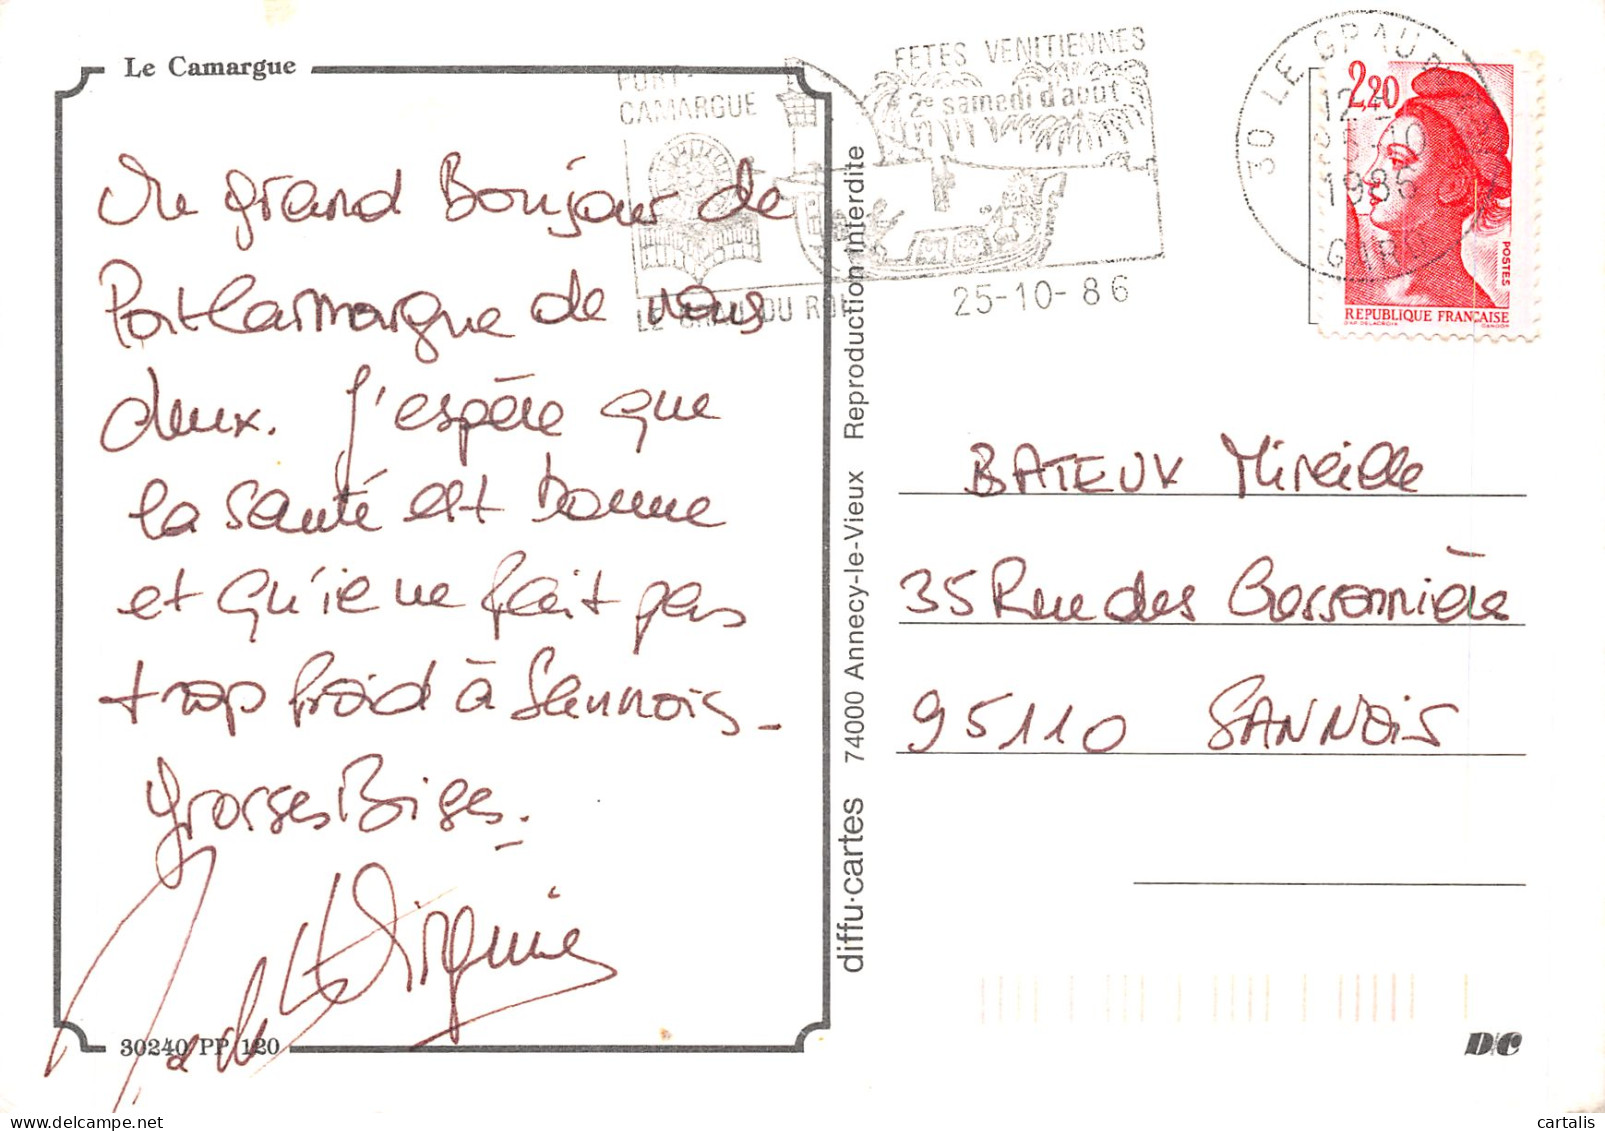 Le Camargue
Un grand Bonjour de
Port Camargue de nous
deux. J'espère que
la santé est bonne
et qu'ie ne fait pas
trop froid à Sannois_
Grosses Bises.
Virginie
30240 PP 120
PORT-
CAMARGUE
FETES VENITIENNES
2e samedi d'août
LE GRAU DU ROI
25-10-86
30 LE GRAU
12
10
1986
GARD
2,20
POSTES
REPUBLIQUE FRANÇAISE
D'AP. DELACROIX GANDON
diffu-cartes 74000 Annecy-le-Vieux Reproduction interdite
BATEUX Mireille
35 Rue des Cressonnières
95110 SANNOIS
D/C
cartalis